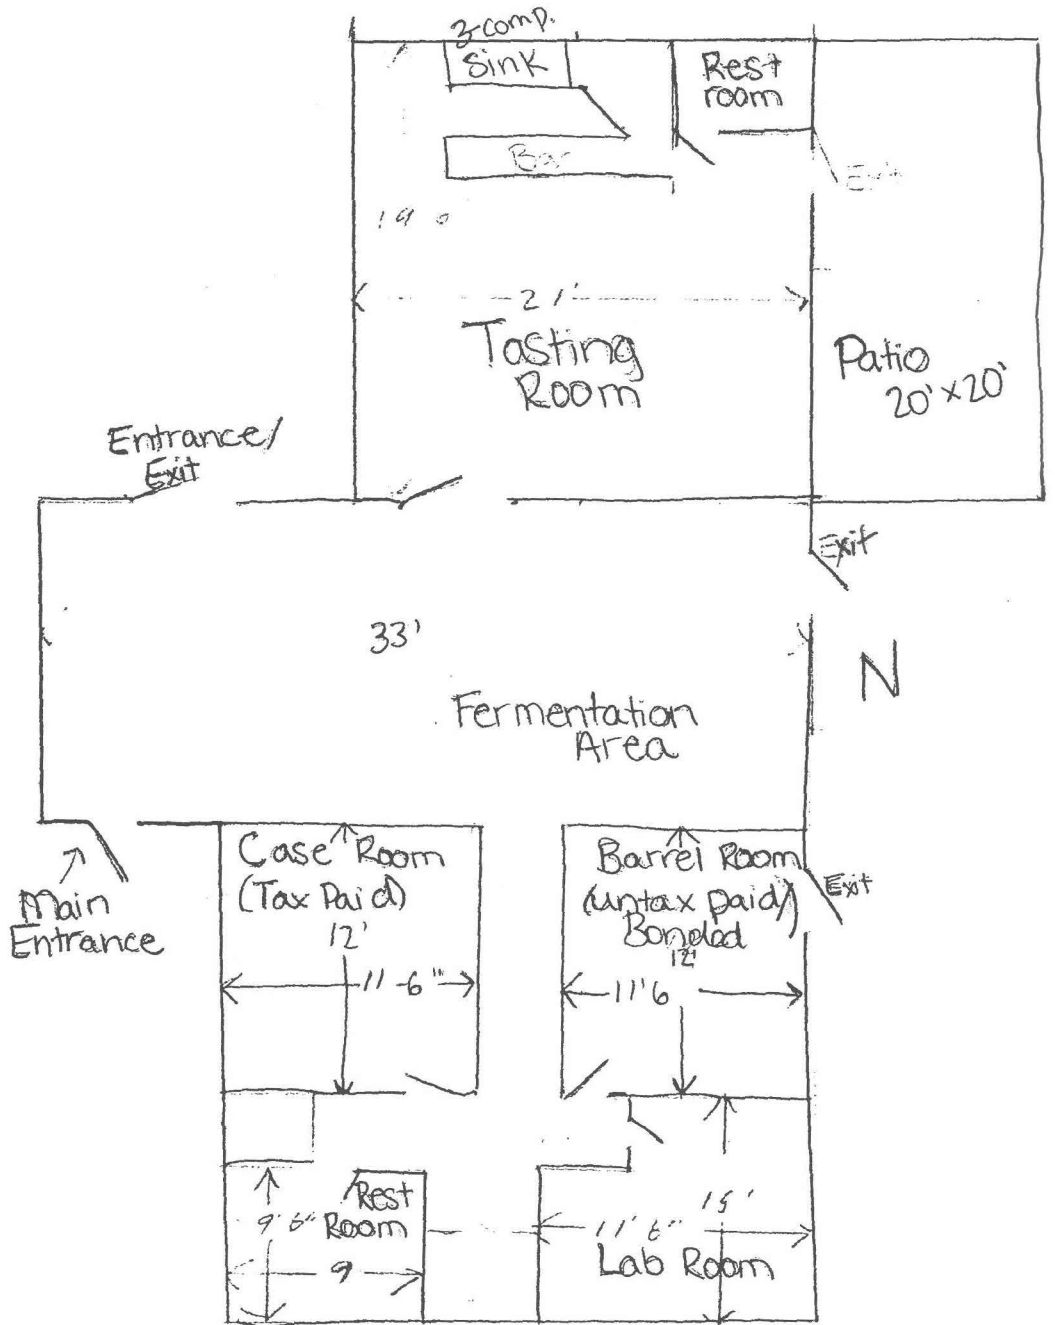 3-comp.
Sink
Rest
room
Bar
Exit
19
21'
Tasting
Room
Patio
20' x 20'
Entrance/
Exit
Exit
33'
N
Fermentation
Area
Case Room
(Tax Paid)
12'
11-6"
Barrel Room
(untax paid)
Bonded
12'
11'6
Exit
Main
Entrance
Rest
Room
9'6"
9
11'6"
Lab Room